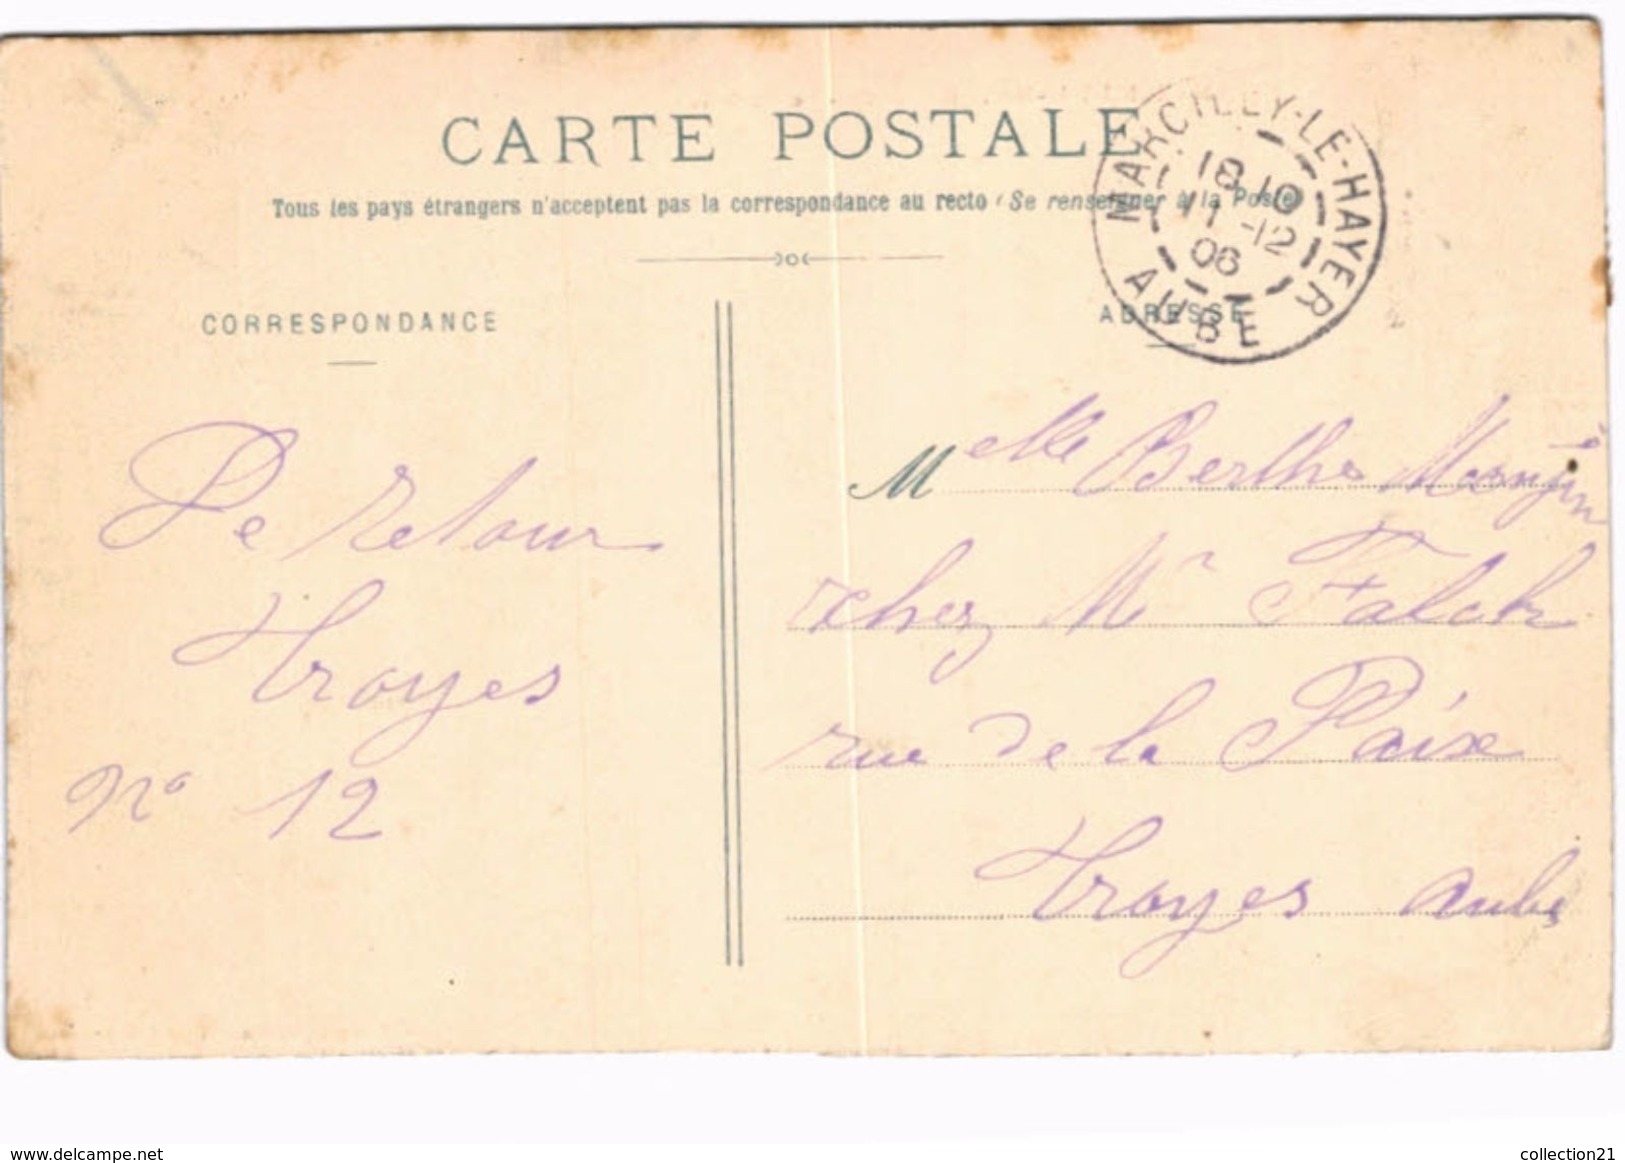 CARTE POSTALE
Tous les pays étrangers n'acceptent pas la correspondance au recto (Se renseigner à la Poste)
MARCILLY-LE-HAYER
18 10
11 -12
06
AUBE
CORRESPONDANCE
ADRESSE
De retour
Troyes
No 12
Melle Berthe Monjin
chez Mr Falch
rue de la Paix
Troyes Aube
www.delcampe.net
collection21